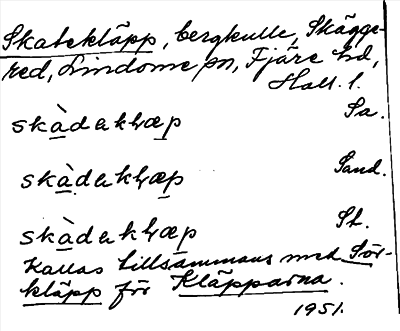 Skatekläpp, bergkulle, Skägge-
red, Lindome sn, Fjäre hd,
Hall. l.
skàdaklæp Sa.
skàdaklæp Sand.
skàdaklæp St.
Kallas tillsammans med Sör-
kläpp för Kläpparna.
1951.